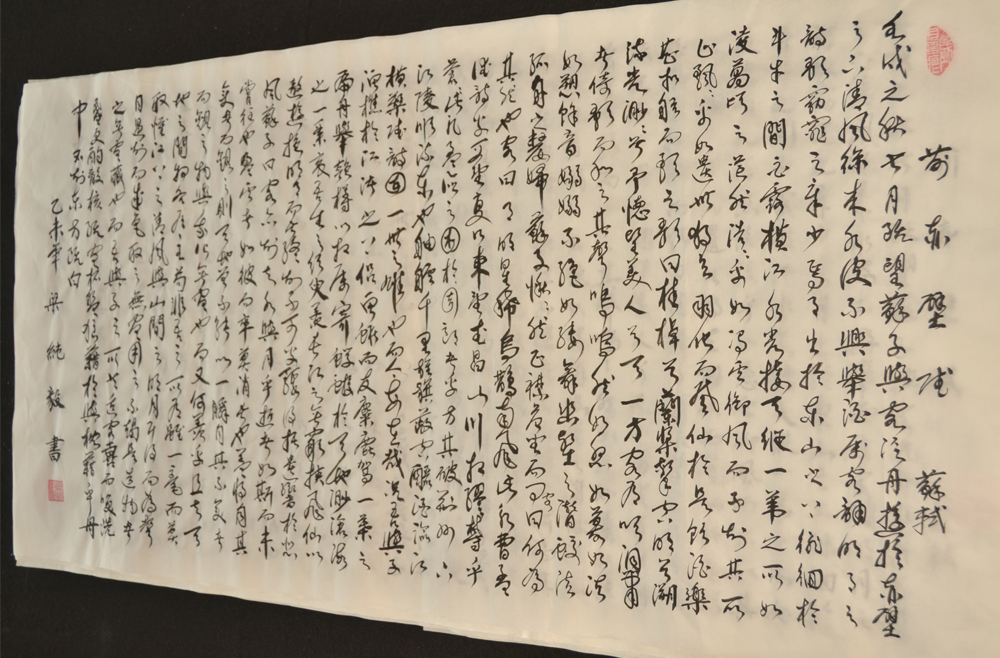 前赤壁賦 蘇軾
壬戌之秋七月既望蘇子與客泛舟遊於赤壁
之下清風徐來水波不興舉酒屬客誦明月之
詩歌窈窕之章少焉月出於東山之上徘徊於
斗牛之間白露橫江水光接天縱一葦之所如
凌萬頃之茫然浩浩乎如馮虛御風而不知其所
止飄飄乎如遺世獨立羽化而登仙於是飲酒樂
甚扣舷而歌之歌曰桂棹兮蘭槳擊空明兮溯
流光渺渺兮予懷望美人兮天一方客有吹洞簫
者倚歌而和之其聲嗚嗚然如怨如慕如泣
如愬餘音嫋嫋不絕如縷舞幽壑之潛蛟泣
孤舟之嫠婦蘇子愀然正襟危坐而問客曰何為
其然也客曰月明星稀烏鵲南飛此非曹孟
德詩乎西望夏口東望武昌山川相繆鬱乎
蒼蒼此非孟德之困於周郎者乎方其破荊州下
江陵順流東也舳艫千里旌旗蔽空釃酒臨江
橫槊賦詩固一世之雄也而今安在哉況吾與子
漁樵於江渚之上侶魚蝦而友麋鹿駕一葉之
扁舟舉匏樽以相屬寄蜉蝣於天地渺滄海
之一粟哀吾生之須臾羨長江之無窮挾飛仙以
遨遊抱明月而長終知不可乎驟得托遺響於悲
風蘇子曰客亦知夫水與月乎逝者如斯而未
嘗往也盈虛者如彼而卒莫消長也蓋將自其
變者而觀之則天地曾不能以一瞬自其不變者
而觀之物與我皆無盡也而又何羨乎且夫天
地之間物各有主苟非吾之所有雖一毫而莫
取惟江上之清風與山間之明月耳得而為聲
目遇之而成色取之無禁用之不竭是造物者
之無盡藏也而吾與子之所共適客喜而笑洗
盞更酌肴核既盡杯盤狼藉相與枕藉乎舟
中不知東方既白
乙未年 梁純毅書